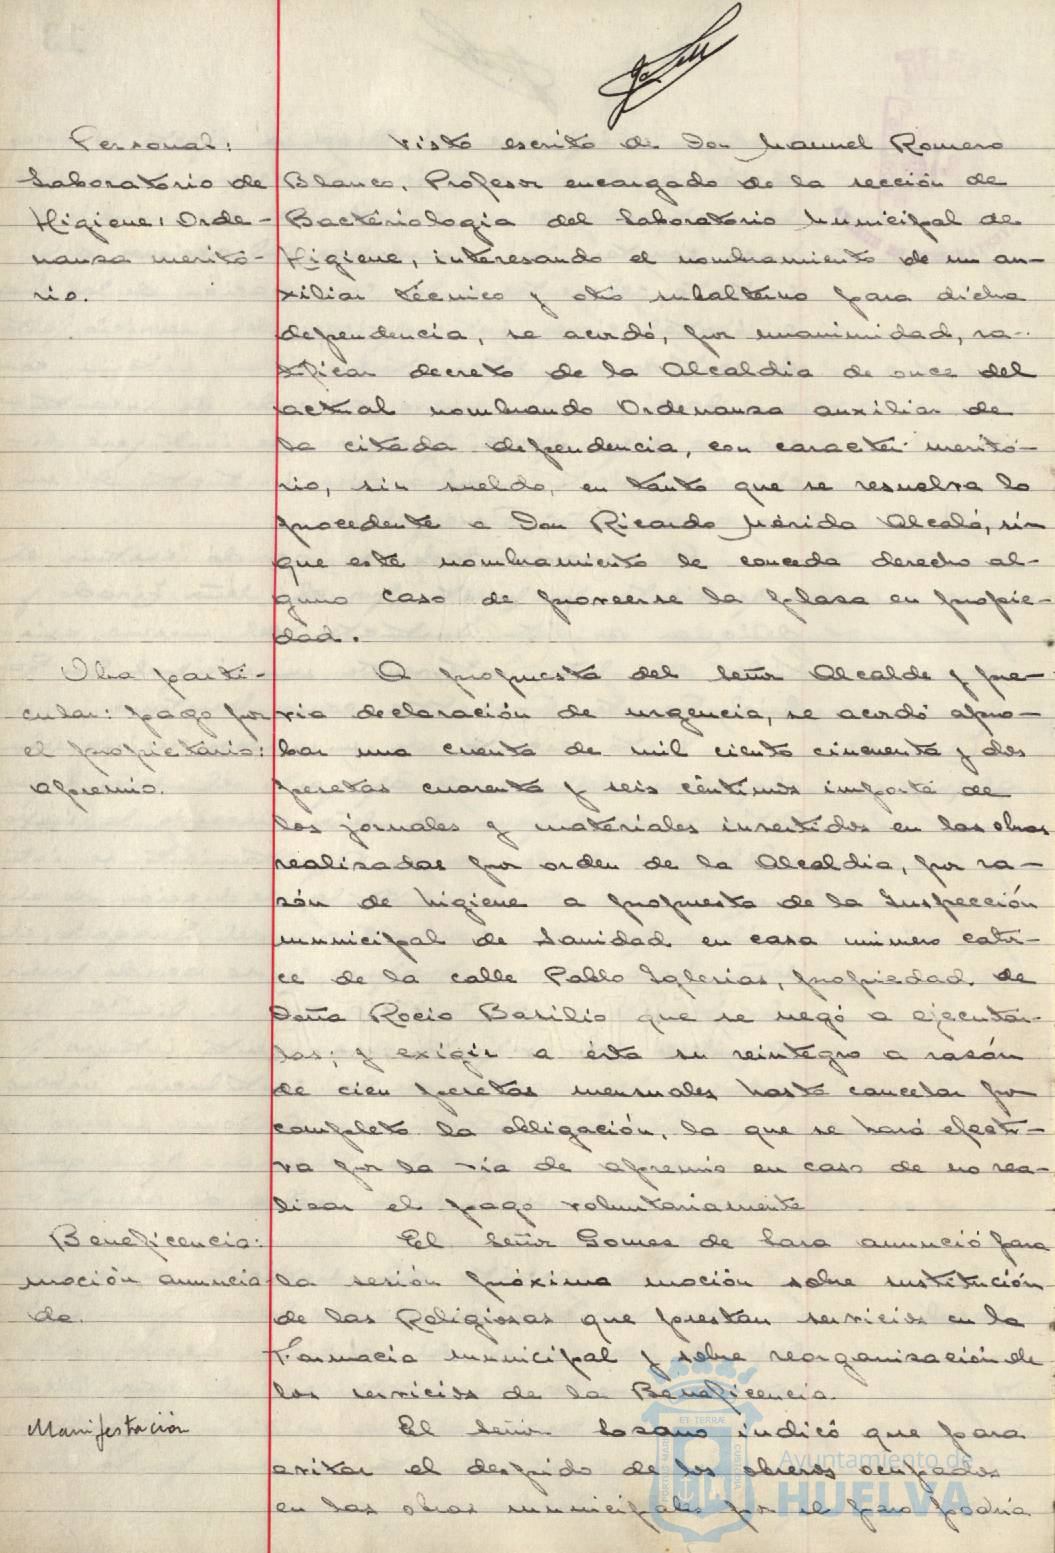 Personal:
Laboratorio de
Higiene: Orde-
nanza merito-
rio.
Visto escrito de Don Manuel Romero
Blanco, Profesor encargado de la sección de
Bacteriología del Laboratorio Municipal de
Higiene, interesando el nombramiento de un au-
xiliar técnico y otro subalterno para dicha
dependencia, se acordó, por unanimidad, ra-
tificar decreto de la Alcaldía de once del
actual nombrando Ordenanza auxiliar de
la citada dependencia, con caracter merito-
rio, sin sueldo, en tanto que se resuelva lo
procedente a Don Ricardo Mérida Alcalá, sin
que este nombramiento le conceda derecho al-
guno caso de proveerse la plaza en propie-
dad.
Obra parti-
cular: pago por
el propietario:
apremio.
A propuesta del Señor Alcalde y pre-
via declaración de urgencia, se acordó apro-
bar una cuenta de mil ciento cincuenta y dos
pesetas cuarenta y seis céntimos importe de
los jornales y materiales invertidos en las obras
realizadas por orden de la Alcaldía, por ra-
zón de higiene a propuesta de la Inspección
municipal de Sanidad en casa número cator-
ce de la calle Pablo Iglesias, propiedad de
Doña Rocio Basilio que se negó a ejecutar-
las; y exigir a ésta su reintegro a razón
de cien pesetas mensuales hasta cancelar por
completo la obligación, la que se hará efecti-
va por la vía de apremio en caso de no rea-
lizar el pago voluntariamente
Beneficencia:
moción anuncia
da.
El Señor Gomez de Lara anunció para
la sesión próxima moción sobre sustitución
de las Religiosas que prestan servicios en la
Farmacia municipal y sobre reorganización de
los servicios de la Beneficencia.
Manifestación
El Señor Lozano indicó que para
evitar el despido de los obreros ocupados
en las obras municipales por el paro podría
Ayuntamiento de
HUELVA